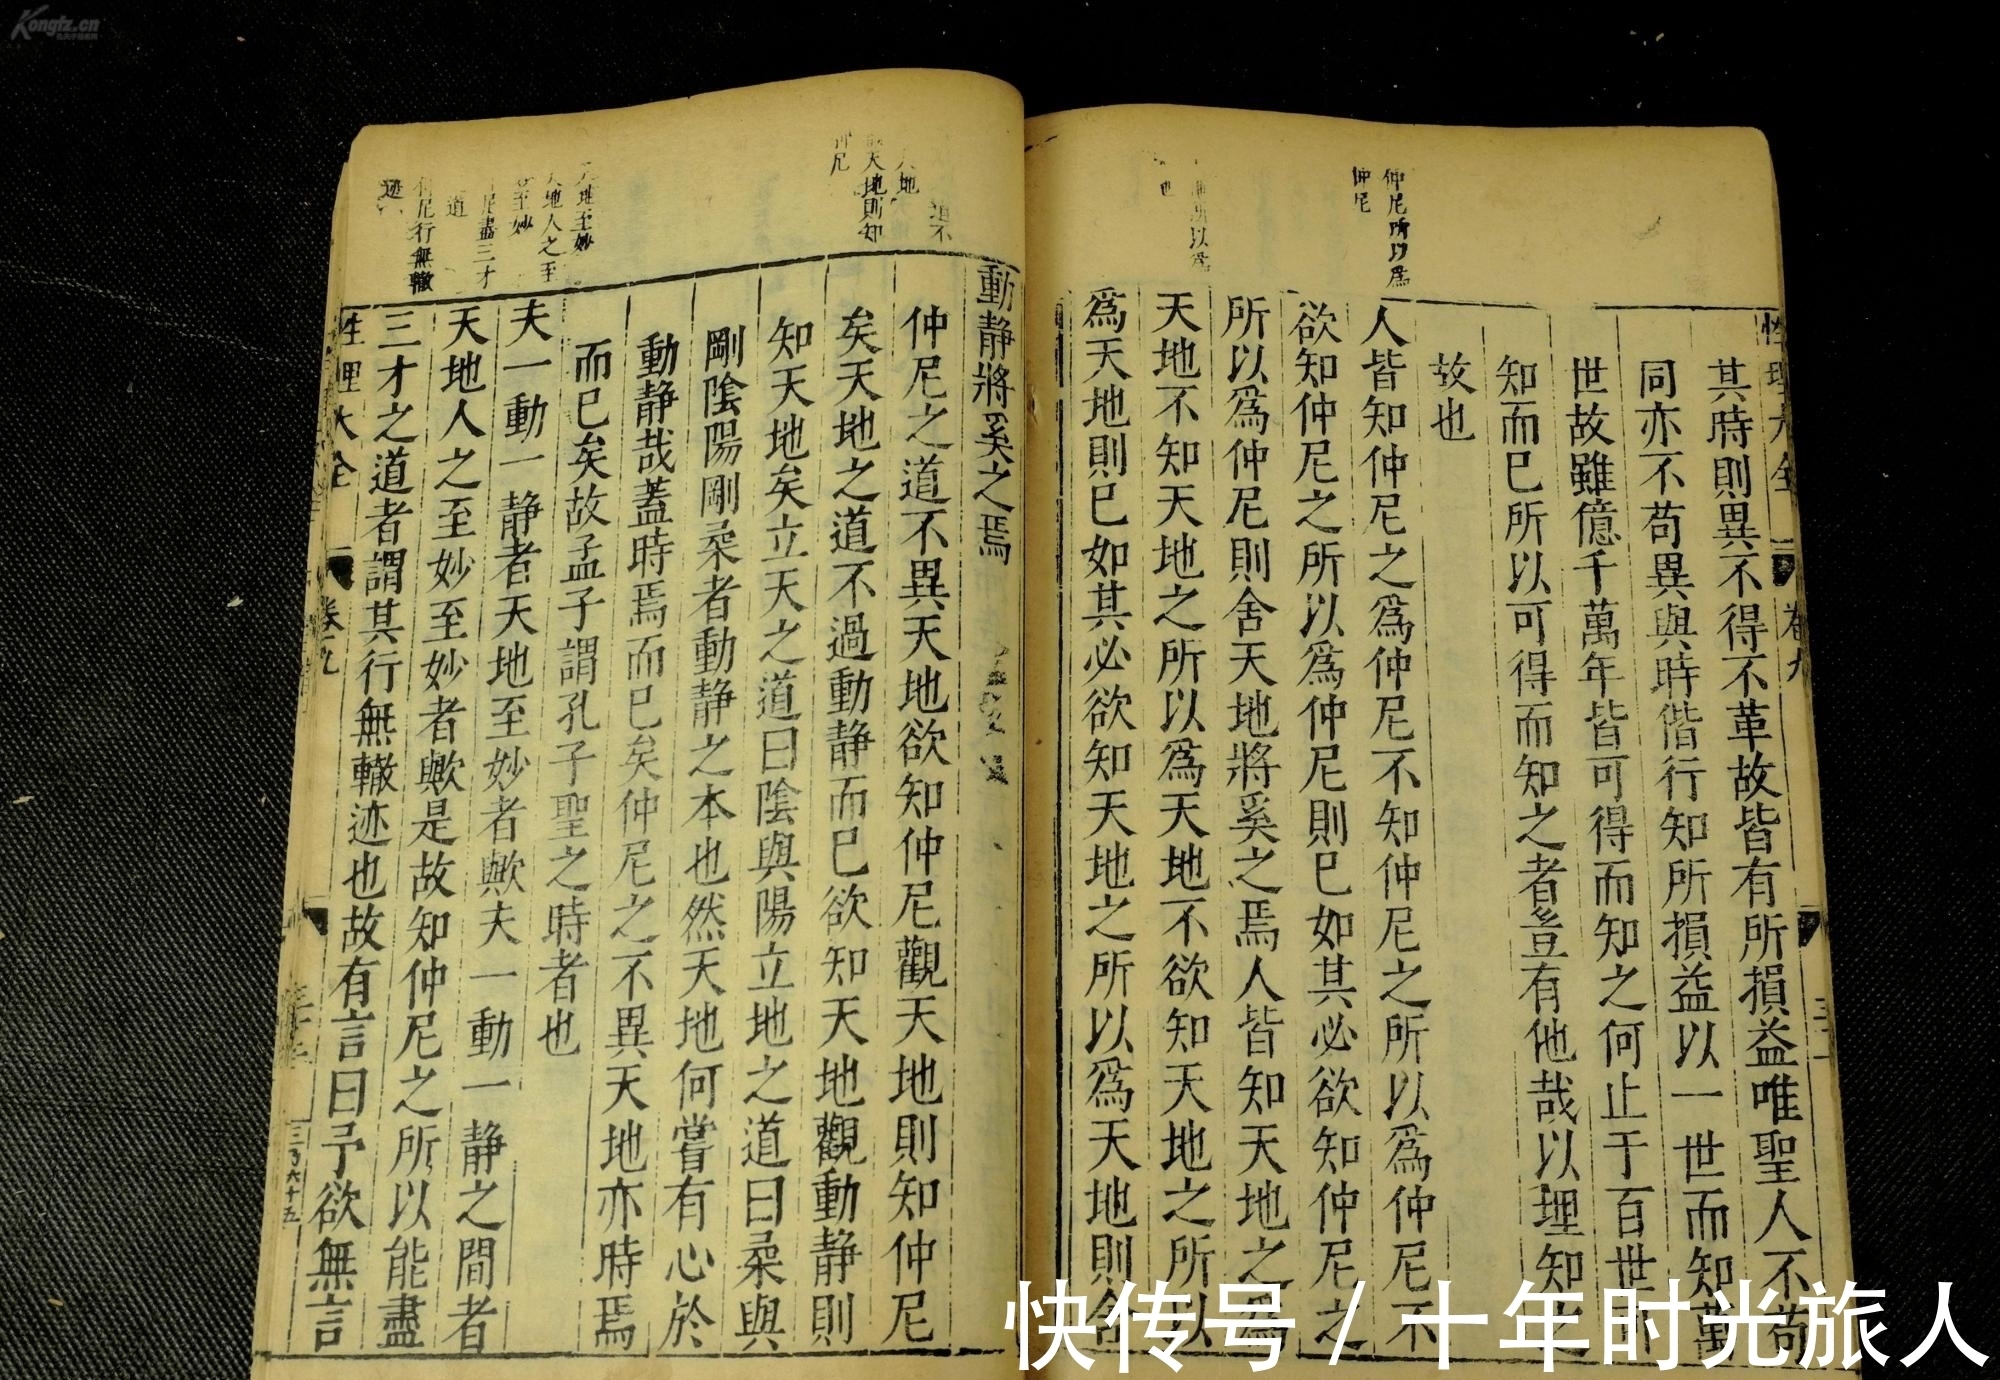 性理大全
卷九
其時則異不得不革故皆有所損益唯聖人不苟
同亦不苟異與時偕行知所損益以一世而知萬
世故雖億千萬年皆可得而知之何止于百世
知而已所以可得而知之者豈有他哉以理知之
故也
仲尼所以爲
仲尼
人皆知仲尼之爲仲尼不知仲尼之所以爲仲尼不
欲知仲尼之所以爲仲尼則已如其必欲知仲尼之
所以爲仲尼則舍天地將奚之焉人皆知天地之爲
天地不知天地之所以爲天地不欲知天地之所以
所以爲
也
爲天地則已如其必欲知天地之所以爲天地則舍
動靜將奚之焉
道不
地
天地則知
尼
仲尼之道不異天地欲知仲尼觀天地則知仲尼
矣天地之道不過動靜而已欲知天地觀動靜則
知天地矣立天之道曰陰與陽立地之道曰柔與
剛陰陽剛柔者動靜之本也然天地何嘗有心於
動靜哉蓋時焉而已矣仲尼之不異天地亦時焉
而已矣故孟子謂孔子聖之時者也
地至妙
地人之至
至妙
尼盡三才
道
尼行無轍
迹
夫一動一靜者天地至妙者歟夫一動一靜之間者
天地人之至妙至妙者歟是故知仲尼之所以能盡
三才之道者謂其行無轍迹也故有言曰予欲無言
性理大全
卷九
六十五
Kongfz.cn
快传号 / 十年时光旅人